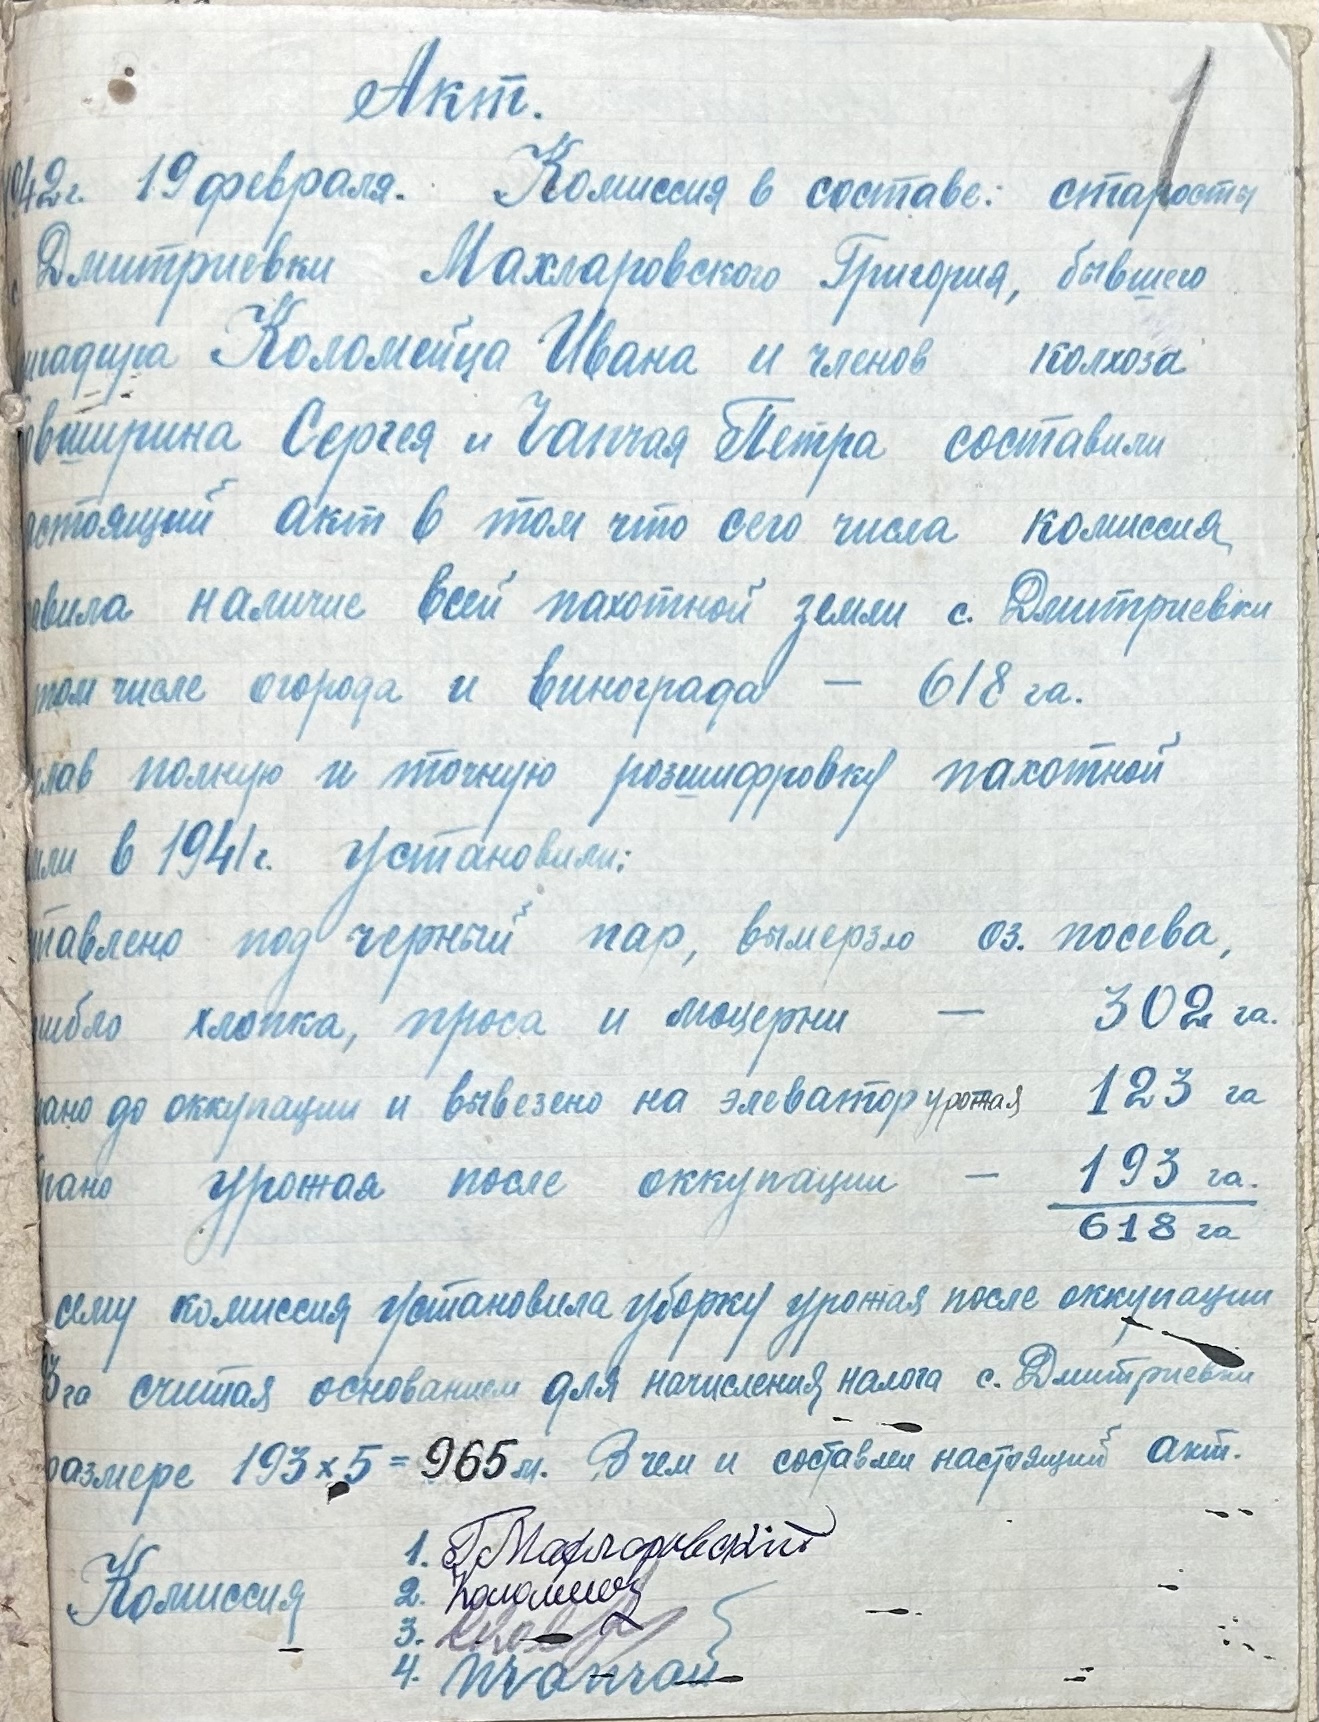 Акт.
1
942г. 19 февраля. Комиссия в составе: старосты
с Дмитриевки Махларовского Григория, бывшего
игадира Коломейца Ивана и членов колхоза
овширина Сергея и Чапчая Петра составили
астоящий акт в том что сего числа комиссия
авила наличие всей пахотной земли с. Дмитриевки
том числе огорода и винограда — 618 га.
елав полную и точную розшифровку пахотной
мли в 1941г. установили:
тавлено под черный пар, вымерзло оз. посева,
гибло хлопка, проса и люцерни — 302 га.
рано до оккупации и вывезено на элеватор урожая 123 га
рано урожая после оккупации — 193 га.
618 га
сему комиссия установила уборку урожая после оккупации
3 га считая основанием для начисления налога с. Дмитриевки
размере 193 х 5 = 965 м. В чем и составлен настоящий акт.
Комиссия 1. Г Махларовский
2. Коломиец
3.
4. ПЧапчай